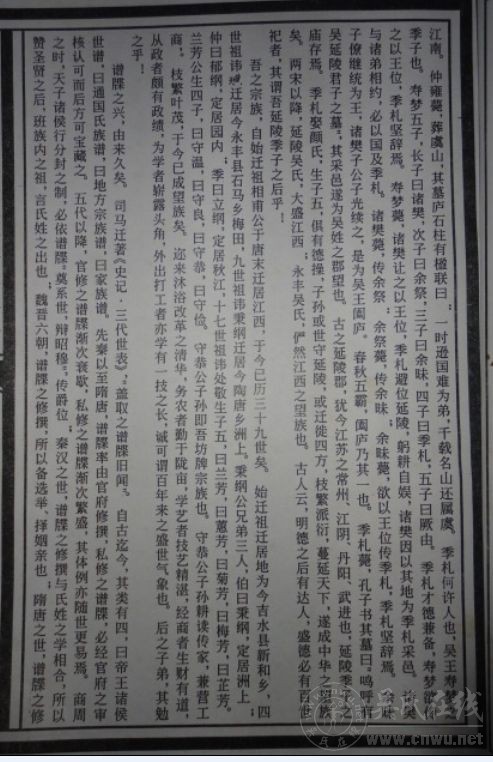 江南。仲雍薨，葬虞山，其墓庐石柱有楹联曰：一时逊国难为弟，千载名山还属虞。季札何许人也，吴王寿梦
季子也。寿梦五子，长子曰诸樊，次子曰余祭，三子曰余昧，四子曰季札，五子曰厥由。季札才德兼备，寿梦欲传
之以王位，季札坚辞焉。寿梦薨，诸樊让之以王位，季札避位延陵，躬耕自娱，诸樊因以其地为季札采邑。诸樊
与诸弟相约，必以国及季札。诸樊薨，传余祭；余祭薨，传余昧；余昧薨，欲以王位传季札，季札坚辞焉。
子僚继统为王，诸樊子公子光续之，是为吴王阖庐。春秋五霸，阖庐乃其一也。季札薨，孔子书其墓曰：呜呼有
吴延陵君子之墓。其采邑遂为吴姓之郡望也。古之延陵郡，犹今江苏之常州、江阴、丹阳、武进也，延陵季子之
庙存焉。季札娶颜氏，生子五，俱有德操，子孙或世守延陵，或迁徙四方，枝繁派衍，蔓延天下，遂成中华之望族
矣。两宋以降，延陵吴氏，大盛江西；永丰吴氏，俨然江西之望族也。古人云，明德之后有达人，盛德必有百世
祀者，其谓吾延陵季子之后乎！
吾之宗族，自始迁祖相甫公于唐末迁居江西，于今已历三十九世矣。始迁祖迁居地为今吉水县新和乡，四
世祖讳 迁居今永丰县石马乡梅田，九世祖讳秉纲迁居今陶唐乡洲上。秉纲公兄弟三人，伯曰秉纲，定居洲上；
仲曰郁纲，定居园内；季曰立纲，定居秋江，十七世祖讳处敬生子五，曰兰芳，曰蕙芳，曰菊芳，曰梅芳，曰芷芳。
兰芳公生四子，曰守温，曰守良，曰守恭，曰守俭。守恭公子孙即吾坊牌宗族也。守恭公子孙耕读传家，兼营工
商，枝繁叶茂，于今已成望族矣。迩来沐浴改革之清华，务农者勤于陇亩，学艺者技艺精湛，经商者生财有道，
从政者颇有政绩，为学者崭露头角，外出打工者亦学有一技之长，诚可谓百年来之盛世气象也。后之子弟，其勉
之乎！
谱牒之兴，由来久矣。司马迁著《史记·三代世表》，盖取之谱牒旧闻。自古迄今，其类有四，曰帝王诸侯
世谱，曰通国氏族谱，曰地方宗族谱，曰家族谱。先秦以至隋唐，谱牒率由官府修撰，私修之谱牒，必经官府之审
核认可而后方可宝藏之。五代以降，官修之谱牒渐次衰歇，私修之谱牒渐次繁盛，其体例亦随世更易焉。商周
之时，天子诸侯行分封之制，必依谱牒“奠系世，辩昭穆”，传爵位。秦汉之世，谱牒之修撰与氏姓之学相合，所以
赞圣贤之后，班族内之祖，言氏姓之出也；魏晋六朝，谱牒之修撰，所以备选举、择姻亲也；隋唐之世，谱牒之修
吴氏在线
www.cnwu.net